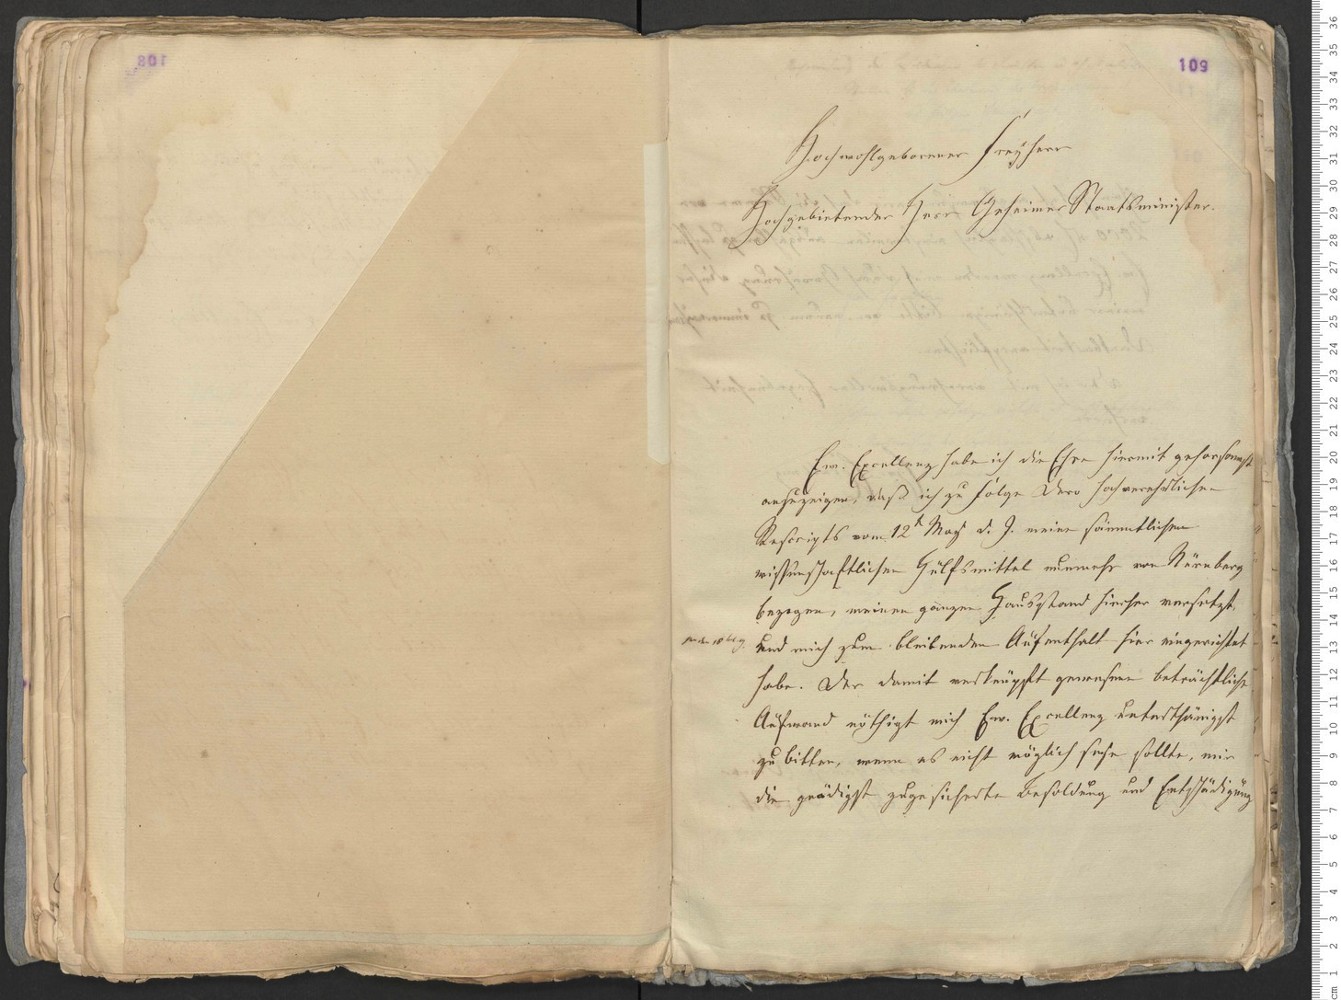 109
Hochwohlgeborener Freyherr
Hochgebietender Herr Geheimer Staatsminister.
Ew. Excellenz habe ich die Ehre hiermit gehorsamst
anzuzeigen, daß ich zu Folge Dero hochverehrlichen
Rescripts vom 12t May d. J. meine sämmtlichen
wissenschaftlichen Hülfsmittel nunmehr von Nürnberg
bezogen, meinen ganzen Hausstand hierher versetzt,
und mich zum bleibenden Aufenthalt hier eingerichtet
habe. Der damit verknüpft gewesene beträchtliche
Aufwand nöthigt mich Ew. Excellenz unterthänigst
zu bitten, wenn es nicht möglich seyn sollte, mir
die gnädigst zugesicherte Besoldung und Entschädigung